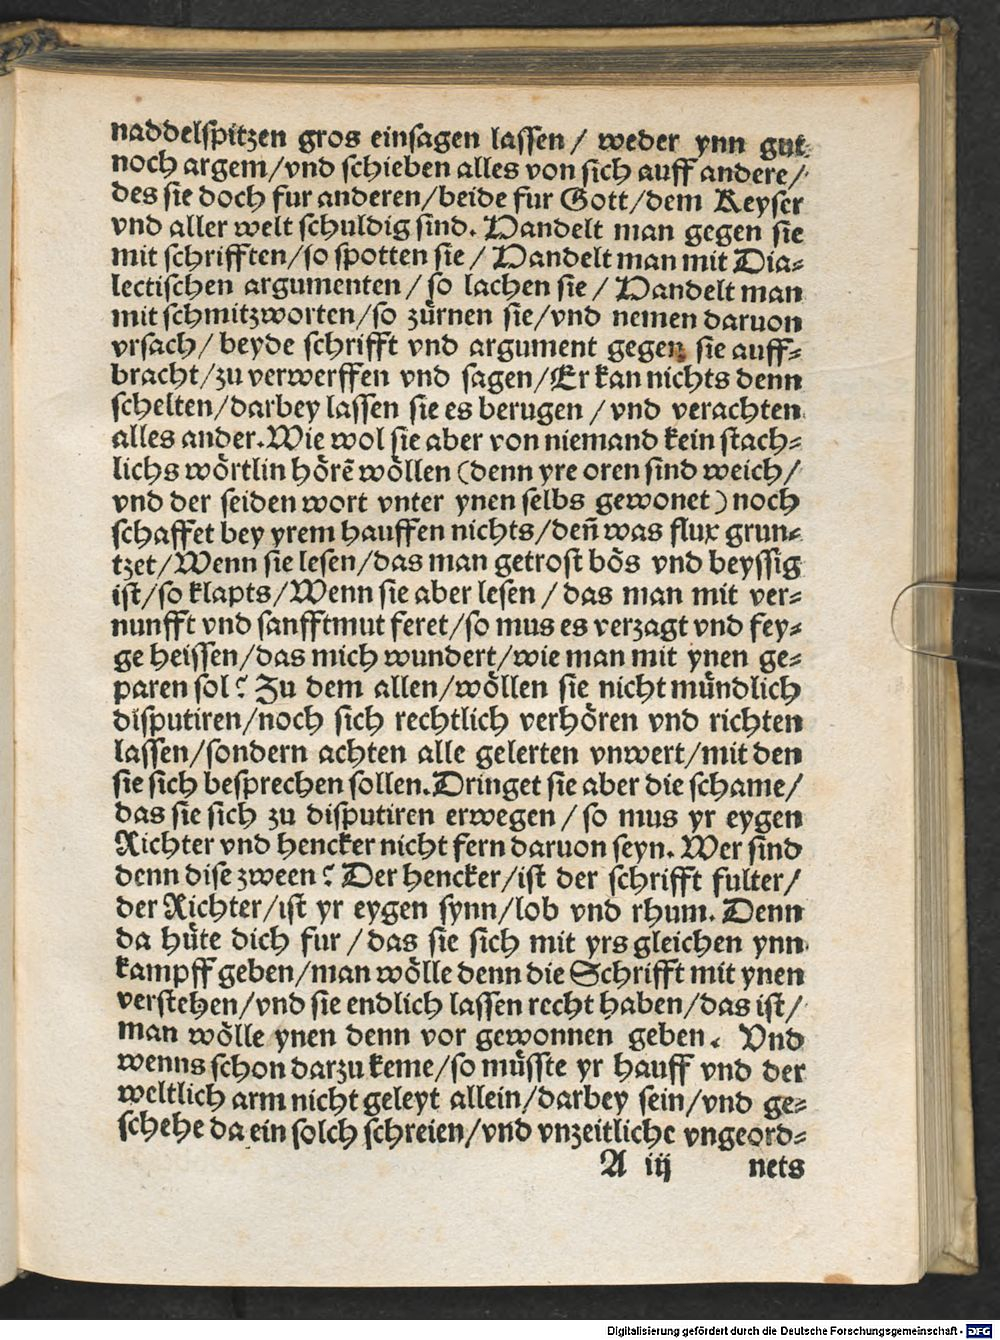 naddelspitzen gros einsagen lassen / weder ynn gut
noch argem/vnd schieben alles von sich auff andere/
des sie doch fur anderen/beide fur Gott/dem Keyser
vnd aller welt schuldig sind. Handelt man gegen sie
mit schrifften/so spotten sie / Handelt man mit Dia-
lectischen argumenten / so lachen sie / Handelt man
mit schmitzworten/so zürnen sie/vnd nemen daruon
vrsach/ beyde schrifft vnd argument gegen sie auff-
bracht/zu verwerffen vnd sagen/Er kan nichts denn
schelten/darbey lassen sie es berugen /vnd verachten
alles ander.Wie wol sie aber von niemand kein stach-
lichs wörtlin hörẽ wöllen (denn yre oren sind weich/
vnd der seiden wort vnter ynen selbs gewonet) noch
schaffet bey yrem hauffen nichts/deñ was flux grun-
tzet/Wenn sie lesen/das man getrost bös vnd beyssig
ist/so klapts/Wenn sie aber lesen / das man mit ver-
nunfft vnd sanfftmut feret/so mus es verzagt vnd fey-
ge heissen/das mich wundert/wie man mit ynen ge-
paren sol? Zu dem allen/wöllen sie nicht mündlich
disputiren/noch sich rechtlich verhören vnd richten
lassen/sondern achten alle gelerten vnwert/mit den
sie sich besprechen sollen.Dringet sie aber die schame/
das sie sich zu disputiren erwegen / so mus yr eygen
Richter vnd hencker nicht fern daruon seyn. Wer sind
denn dise zween? Der hencker/ist der schrifft fulter/
der Richter/ist yr eygen synn/lob vnd rhum. Denn
da hüte dich fur / das sie sich mit yrs gleichen ynn
kampff geben/man wölle denn die Schrifft mit ynen
verstehen/vnd sie endlich lassen recht haben/das ist/
man wölle ynen denn vor gewonnen geben. Vnd
wenns schon darzu keme/so müsste yr hauff vnd der
weltlich arm nicht geleyt allein/darbey sein/vnd ge-
schehe da ein solch schreien/vnd vnzeitliche vngeord-
A iij nets
Digitalisierung gefördert durch die Deutsche Forschungsgemeinschaft - DFG